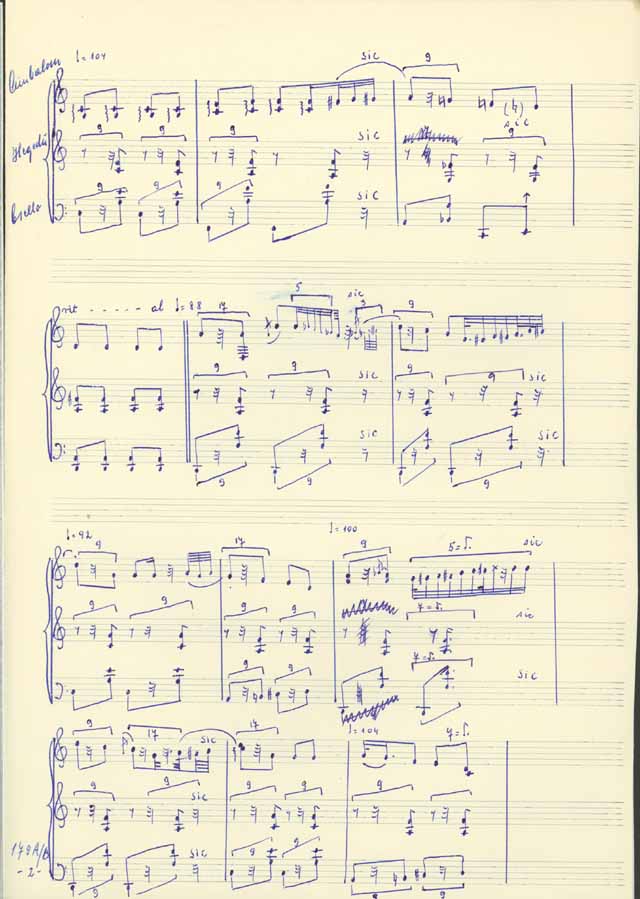 Cimbalom ♩= 104 sic 9
Hegedű 9 9 9 sic sic 9
Csello 9 9 9 sic
rit - - - - - al ♩= 88 17 5 sic 9 9
9 9 sic 9 9 sic
9 9 sic 9 9 sic
♩= 92 9 17 ♩= 100 9 5=♩. sic
9 9 9 9 7=♩. sic
9 9 9 9 7=♩. sic
9 17 sic 17 ♩= 104 7=♩.
9 9 sic 9 9 9 9
179A/B 9 9 sic 9 9
- 2 - 9 9